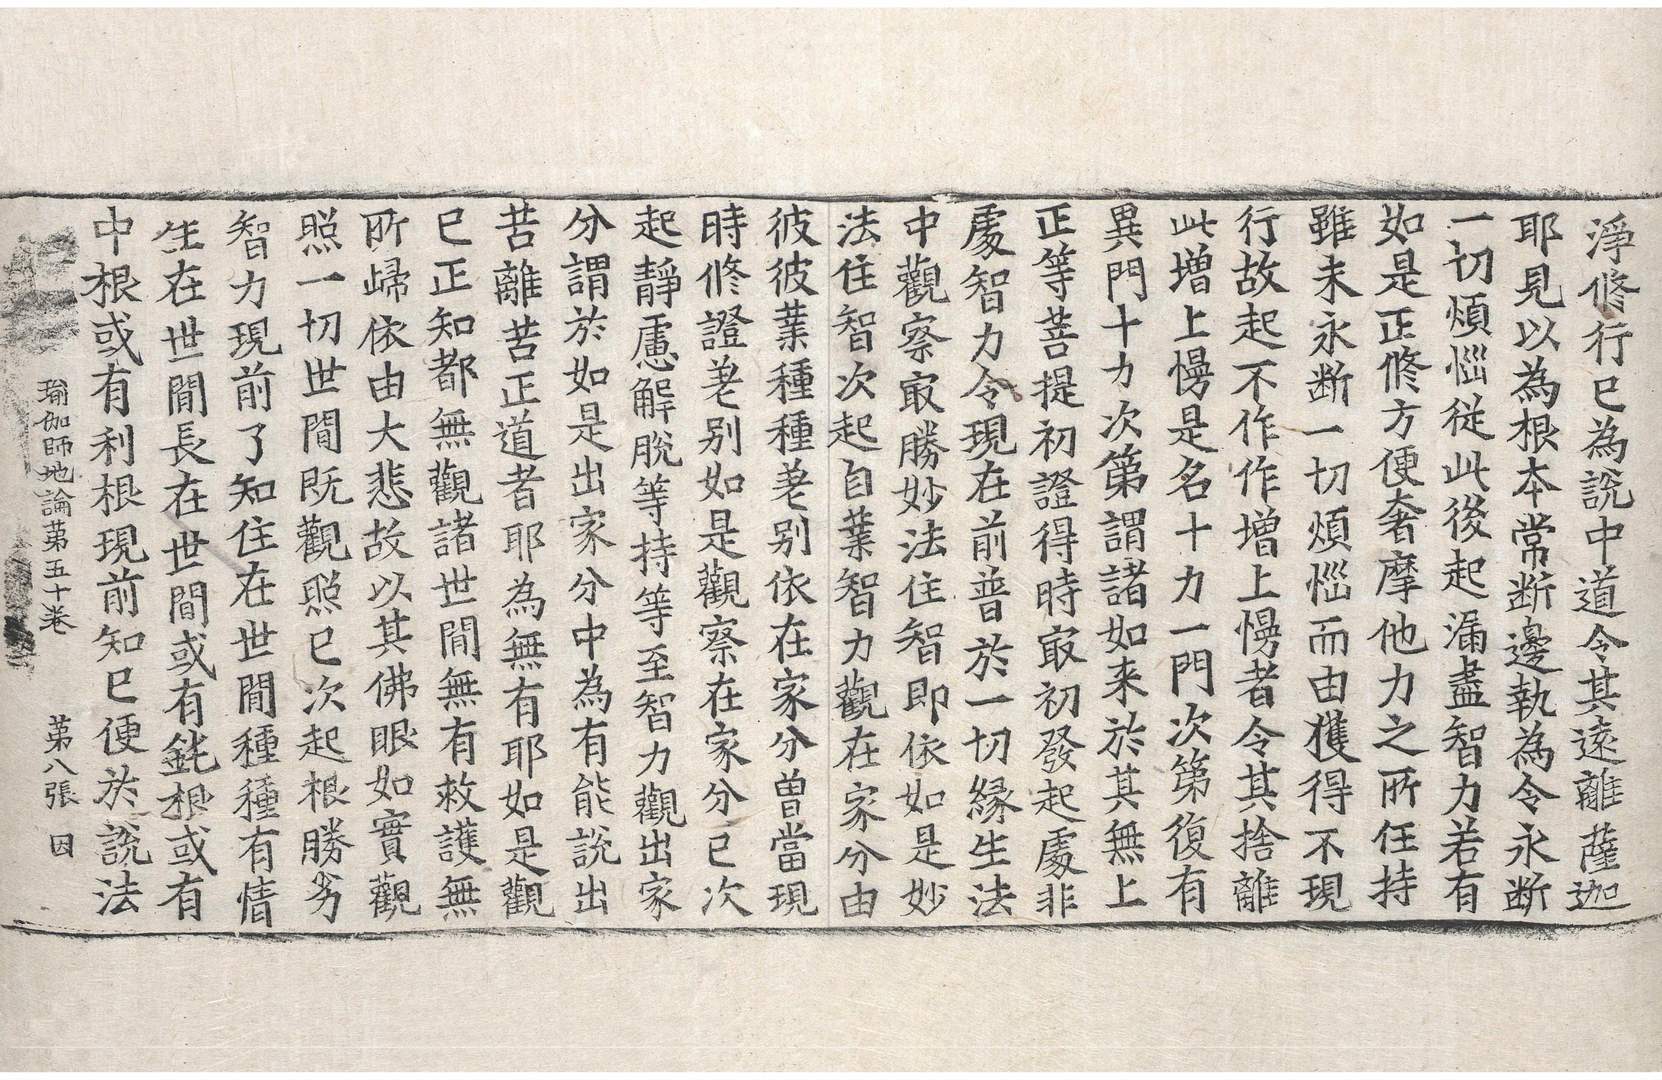 淨修行已為說中道令其遠離薩迦
耶見以為根本常斷邊執為令永斷
一切煩惱從此後起漏盡智力若有
如是正修方便奢摩他力之所任持
雖未永斷一切煩惱而由獲得不現
行故起不作作增上慢者令其捨離
此增上慢是名十力一門次第復有
異門十力次第謂諸如来於其無上
正等菩提初證得時㝡初發起處非
處智力令現在前普於一切緣生法
中觀察㝡勝妙法住智即依如是妙
法住智次起自業智力觀在家分由
彼彼業種種差別依在家分曾當現
時修證差別如是觀察在家分已次
起靜慮解脫等持等至智力觀出家
分謂於如是出家分中為有能說出
苦離苦正道者耶為無有耶如是觀
已正知都無觀諸世間無有救護無
所歸依由大悲故以其佛眼如實觀
照一切世間既觀照已次起根勝劣
智力現前了知住在世間種種有情
生在世間長在世間或有鈍根或有
中根或有利根現前知已便於說法
瑜伽師地論第五十卷 第八張 因